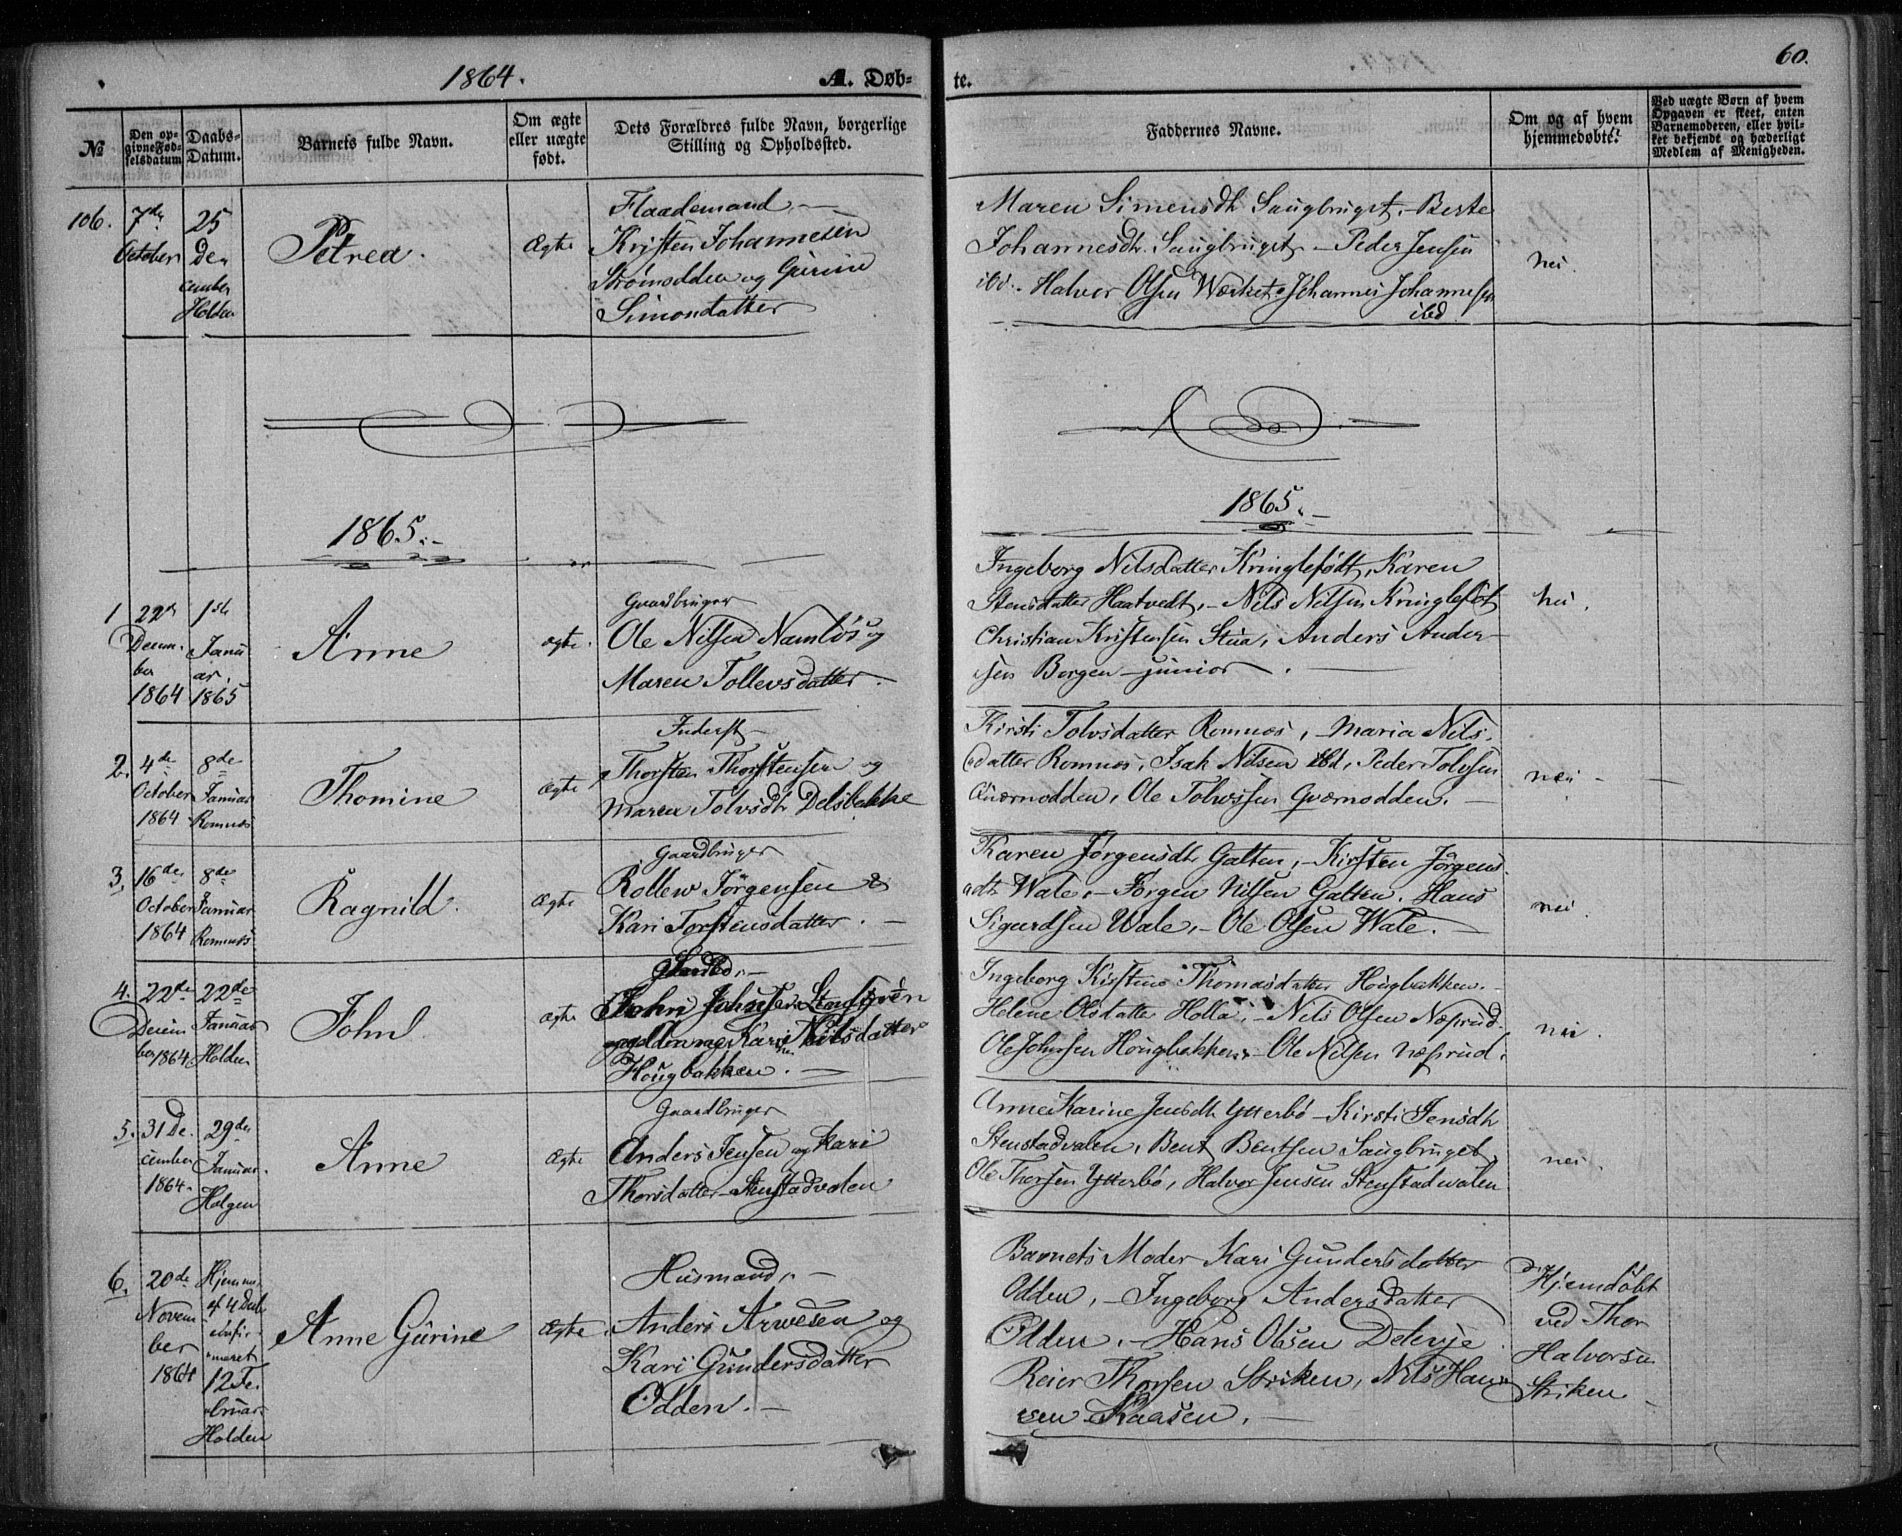 1864.
A. Døb-
te.
60.
№
Den op-
givne Fød-
selsdatum
Daabs-
Datum.
Barnets fulde Navn.
Om ægte
eller uægte
født.
Dets Forældres fulde Navn, borgerlige
Stilling og Opholdssted.
Faddernes Navne.
Om og af hvem
hjemmedøbte.
Ved uægte Børn af hvem
Opgaven er skeet, enten
Barnemoderen, eller hvil-
ket bekjendt og hæderligt
Medlem af Menigheden.
106.
7de
October
25
De
cember
Holden
Petrea.
Ægte
Flaademand
Kristen Johannesen
Strømodden og Gurine
Simonsdatter
Maren Simensdtr Saugbruget, Berte
Johannesdtr. Saugbruget - Peder Jensen
ibd. - Halvor Olsen Værket - Johannes Johannesen
ibd
nei.
1865.
1865.
1
22d
Decem-
ber
1864
1ste
Janu
ar.
1865
Anne
ægte.
Gaardbruger
Ole Nilsen Namløs og
Maren Tollevsdatter
Ingeborg Nilsdatter Kringlefødt, Karen
Stensdatter Haatvedt, - Nils Nilsen Kringlefot
Christian Kristensen Stua, Anders Ander-
sen Borgen junior.
nei.
2.
4de
October
1864
8de
Januar
Romnæs
Thomine
ægte
Inderst
Thorsten Thorstensen og
Maren Tolvsdtr. Delsbakke
Kirsti Tolvsdatter Romnæs, - Maria Nils-
datter Romnæs, Isak Nilsen ibd, Peder Tolvsen
Qværnodden, Ole Tolvssen Qværnodden.
nei
3.
16de
October
1864
8de
Januar
Romnæs
Ragnild.
Ægte
Gaardbruger
Rollev Jörgensen &
Kari Torstensdatter.
Karen Jörgensdtr Galten, - Kirsten Jörgens
dtr Wale, - Jörgen Nilsen Galten. Hans
Sigurdsen Wale, - Ole Olsen Wale.
nei.
4.
22de
Decem
ber 1864
22de
Januar
Holden
John
ægte
John Johnsen
Kari Nilsdatter
Hougbakken.
Ingeborg Kirstine Thomasdatter Hougbakken.
Helene Olsdatter Holla, - Nils Olsen Næsrud
Ole Johnsen Hougbakken, - Ole Nilsen Næsrud.
nei.
5.
31 De
cember
1864.
29de
Januar
Helgen
Anne
Ægte
Gaardbruger
Anders Jensen og Kari
Thorsdatter Stenstadvalen
Anne Karine Jensdtr Ytterbö - Kirsti Jensdtr
Stenstadvalen, Bent Bentsen Saugbruget
Ole Thorsen Ytterbö, Halvor Jensen Stenstadvalen
nei.
6.
20de
Novem
ber
1864
Hjemme
af 4 Decb
confir-
meret
12 Fe-
bruar
Holden
Anne Gurine
Ægte
Husmand,
Anders Arvesen og
Kari Gundersdatter
Odden.
Barnets Moder Kari Gundersdatter
Odden, - Ingeborg Andersdatter
Odden, - Hans Olsen Deleje
Reier Thorsen Striken, Nils Han
sen Kaasen.
Hjemdöbt
ved Thor
Halvorsen
Striken